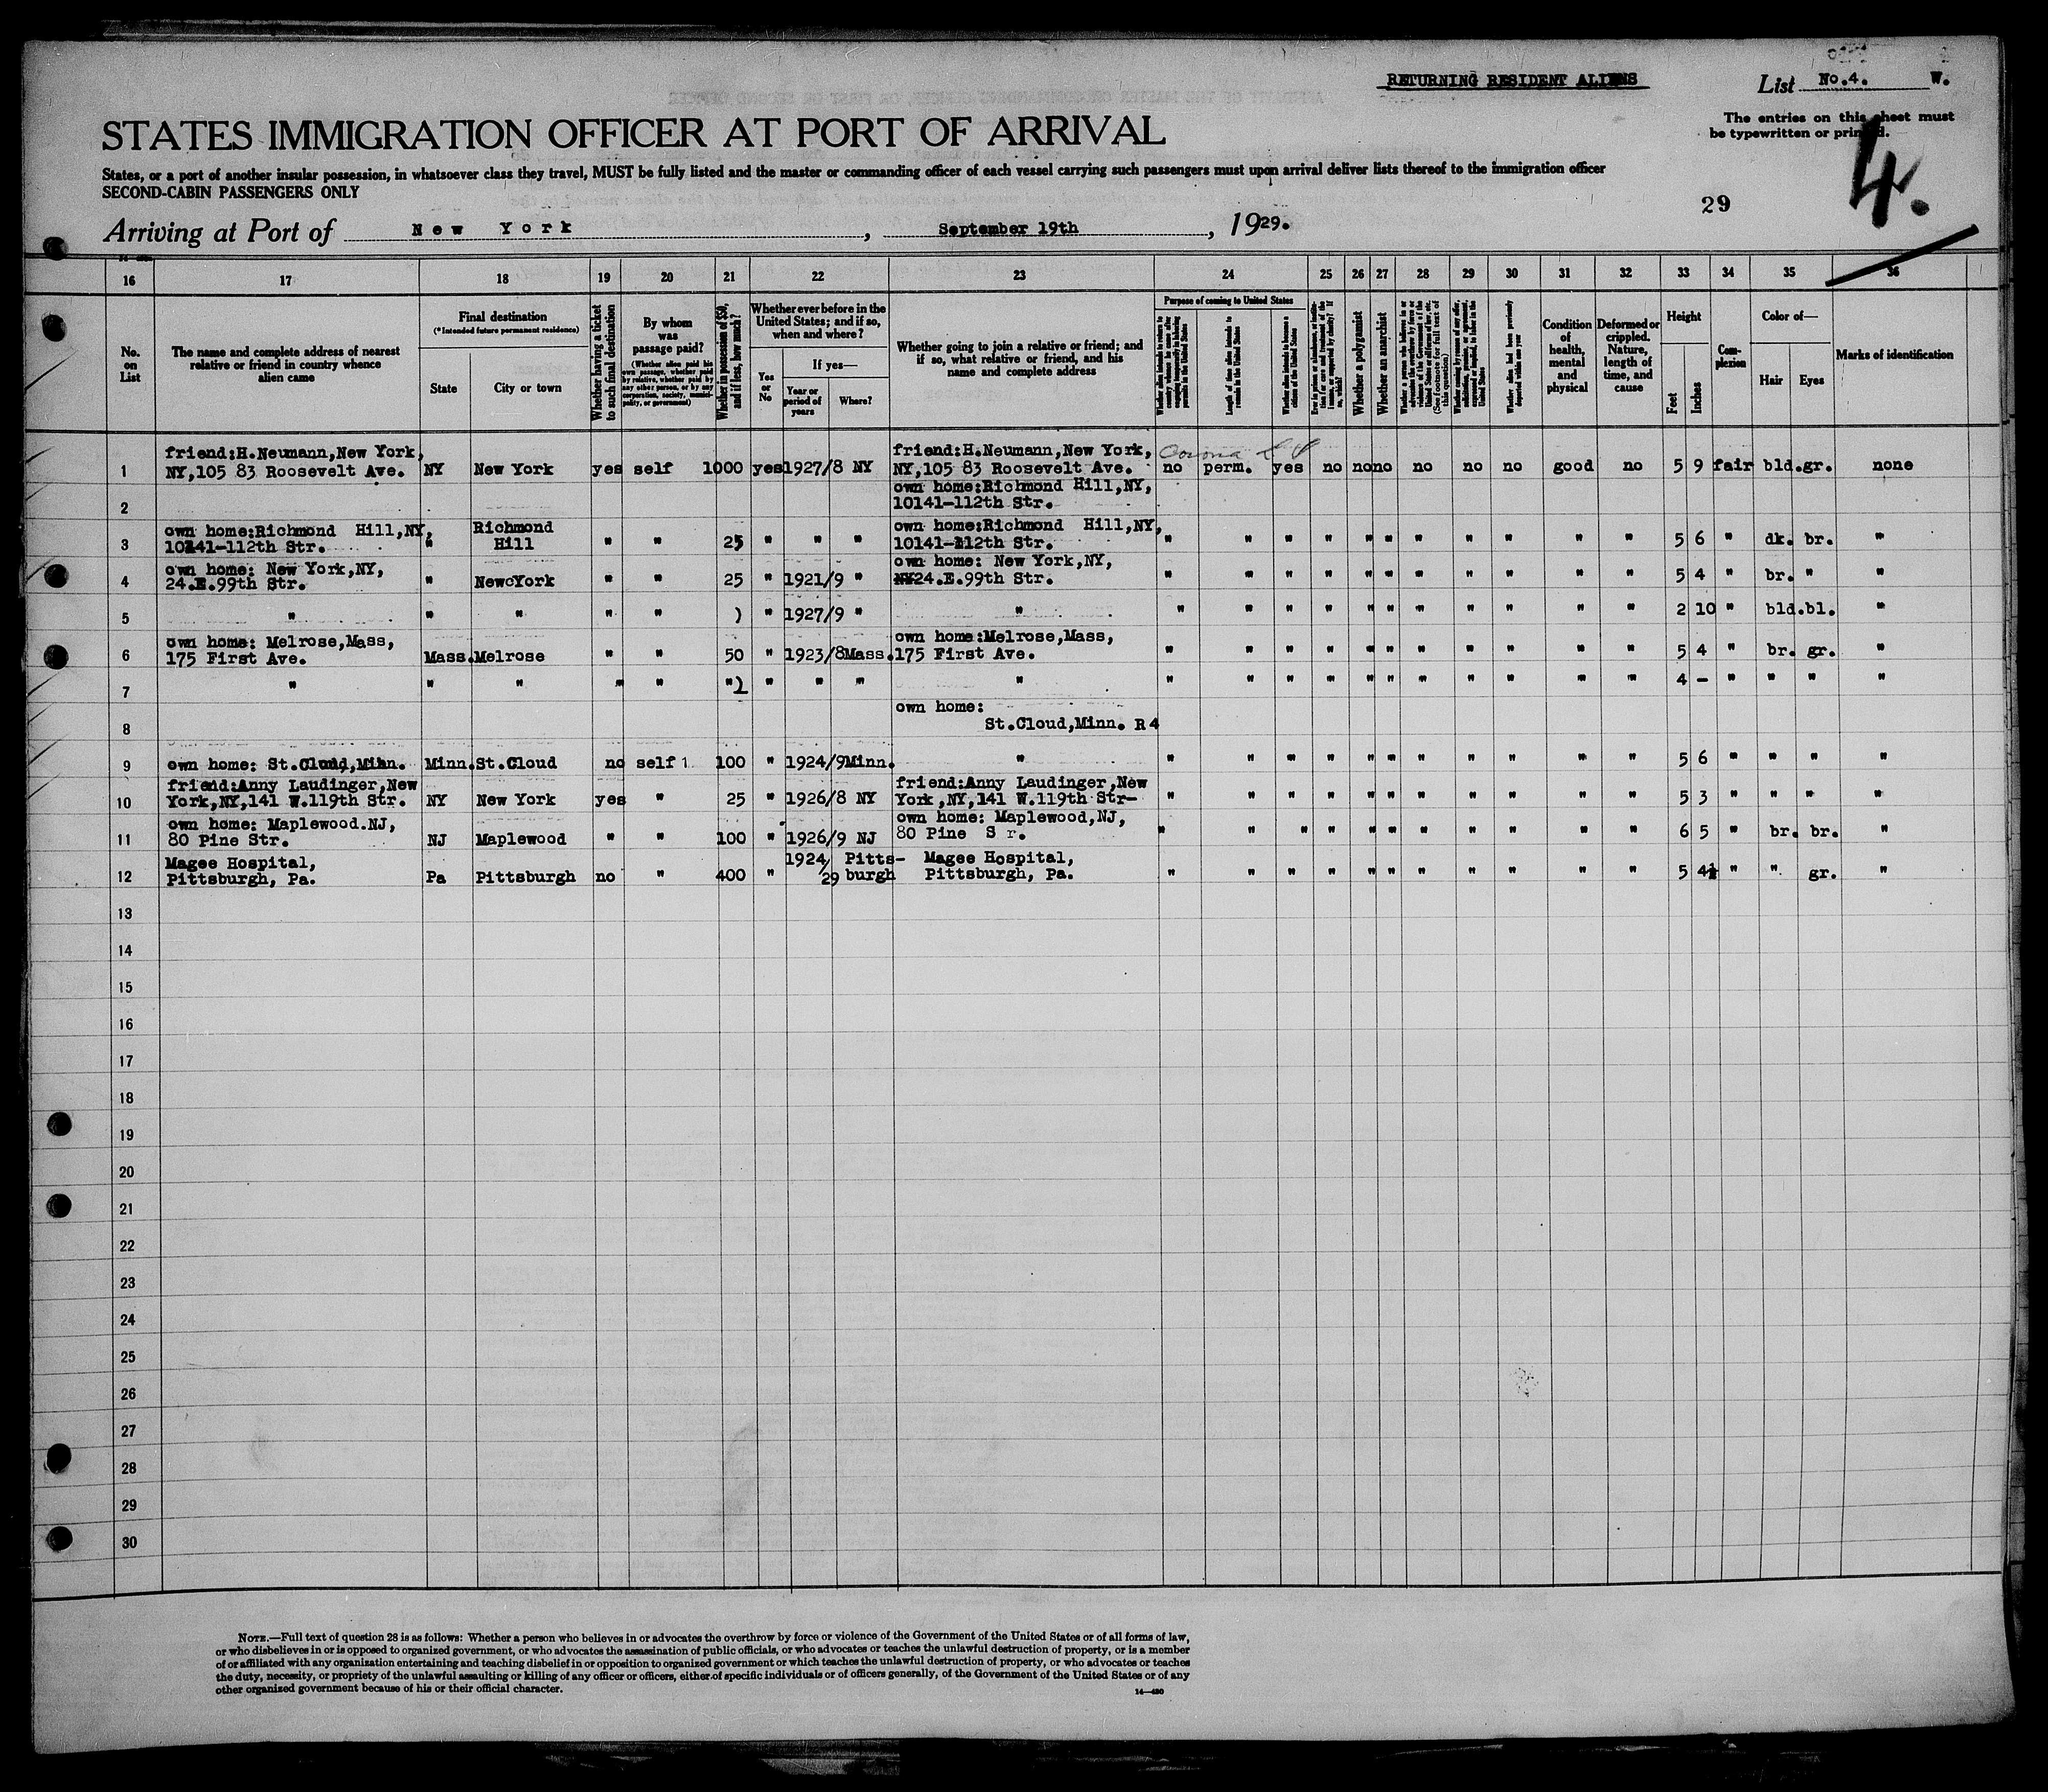 RETURNING RESIDENT ALIENS
List No.4. W.
The entries on this sheet must
be typewritten or printed.
4.
29
STATES IMMIGRATION OFFICER AT PORT OF ARRIVAL
States, or a port of another insular possession, in whatsoever class they travel, MUST be fully listed and the master or commanding officer of each vessel carrying such passengers must upon arrival deliver lists thereof to the immigration officer
SECOND-CABIN PASSENGERS ONLY
Arriving at Port of New York, September 19th, 1929.
16 17 18 19 20 21 22 23 24 25 26 27 28 29 30 31 32 33 34 35 36
No. on List
The name and complete address of nearest relative or friend in country whence alien came
Final destination
(*Intended future permanent residence)
State
City or town
Whether having a ticket to such final destination
By whom was passage paid?
(Whether alien paid his own passage, whether paid by relative, whether paid by any other person, or by any corporation, society, municipality, or government)
Whether in possession of $50, and if less, how much?
Whether ever before in the United States; and if so, when and where?
Yes or No
If yes—
Year or period of years
Where?
Whether going to join a relative or friend; and if so, what relative or friend, and his name and complete address
Purpose of coming to United States
Whether alien intends to return to country whence he came after engaging temporarily in laboring pursuits in the United States
Length of time alien intends to remain in the United States
Whether alien intends to become a citizen of the United States
Whether a polygamist
Whether an anarchist
Whether alien had been previously deported within one year
Condition of health, mental and physical
Deformed or crippled. Nature, length of time, and cause
Height
Feet
Inches
Complexion
Color of—
Hair
Eyes
Marks of identification
friend:H.Neumann,New York, friend:H.Neumann,New York, Corona L I
1 NY,105 83 Roosevelt Ave. NY New York yes self 1000 yes 1927/8 NY NY,105 83 Roosevelt Ave. no perm. yes no no no no no no good no 5 9 fair bld. gr. none
own home:Richmond Hill,NY,
2 10141-112th Str.
own home:Richmond Hill,NY, Richmond own home:Richmond Hill,NY,
3 10141-112th Str. " Hill " " 25 " " " 10141-112th Str. " " " " " " " " " " " 5 6 " dk. br. "
own home: New York,NY, own home: New York,NY,
4 24.E.99th Str. " New York " " 25 " 1921/9 " 24.E.99th Str. " " " " " " " " " " " 5 4 " br. " "
5 " " " " " ) " 1927/9 " " " " " " " " " " " " " 2 10 " bld. bl. "
own home: Melrose,Mass, own home:Melrose,Mass,
6 175 First Ave. Mass. Melrose " " 50 " 1923/8 Mass. 175 First Ave. " " " " " " " " " " " 5 4 " br. gr. "
7 " " " " " " " " " " " " " " " " " " " " " 4 - " " " "
own home:
8 St.Cloud,Minn. R4
9 own home: St.Cloud,Minn. Minn. St.Cloud no self 100 " 1924/9 Minn. " " " " " " " " " " " " 5 6 " " " "
friend:Anny Laudinger,New friend:Anny Laudinger,New
10 York,NY,141 W.119th Str. NY New York yes " 25 " 1926/8 NY York,NY,141 W.119th Str- " " " " " " " " " " " 5 3 " " " "
own home: Maplewood.NJ, own home: Maplewood,NJ,
11 80 Pine Str. NJ Maplewood " " 100 " 1926/9 NJ 80 Pine S r. " " " " " " " " " " " 6 5 " br. br. "
Magee Hospital, 1924/ Pitts- Magee Hospital,
12 Pittsburgh, Pa. Pa Pittsburgh no " 400 " 29 burgh Pittsburgh, Pa. " " " " " " " " " " " 5 4½ " " gr. "
13
14
15
16
17
18
19
20
21
22
23
24
25
26
27
28
29
30
NOTE.—Full text of question 28 is as follows: Whether a person who believes in or advocates the overthrow by force or violence of the Government of the United States or of all forms of law,
or who disbelieves in or is opposed to organized government, or who advocates the assassination of public officials, or who advocates or teaches the unlawful destruction of property, or is a member
of or affiliated with any organization entertaining and teaching disbelief in or opposition to organized government or which teaches the unlawful destruction of property, or who advocates or teaches
the duty, necessity, or propriety of the unlawful assaulting or killing of any officer or officers, either of specific individuals or of officers generally, of the Government of the United States or of any
other organized government because of his or their official character.
14—420